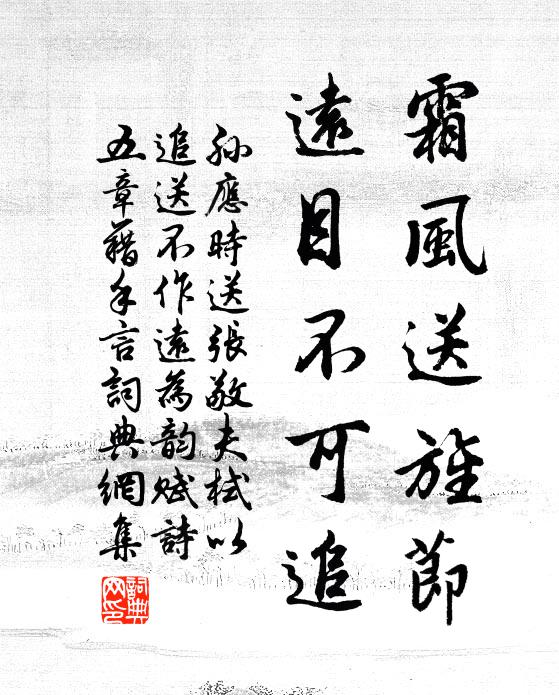 霜風送旌節
遠目不可追
孫應時送張敬夫栻以
追送不作遠為韵賦詩
五章藉手言詞典網集
詞典网印